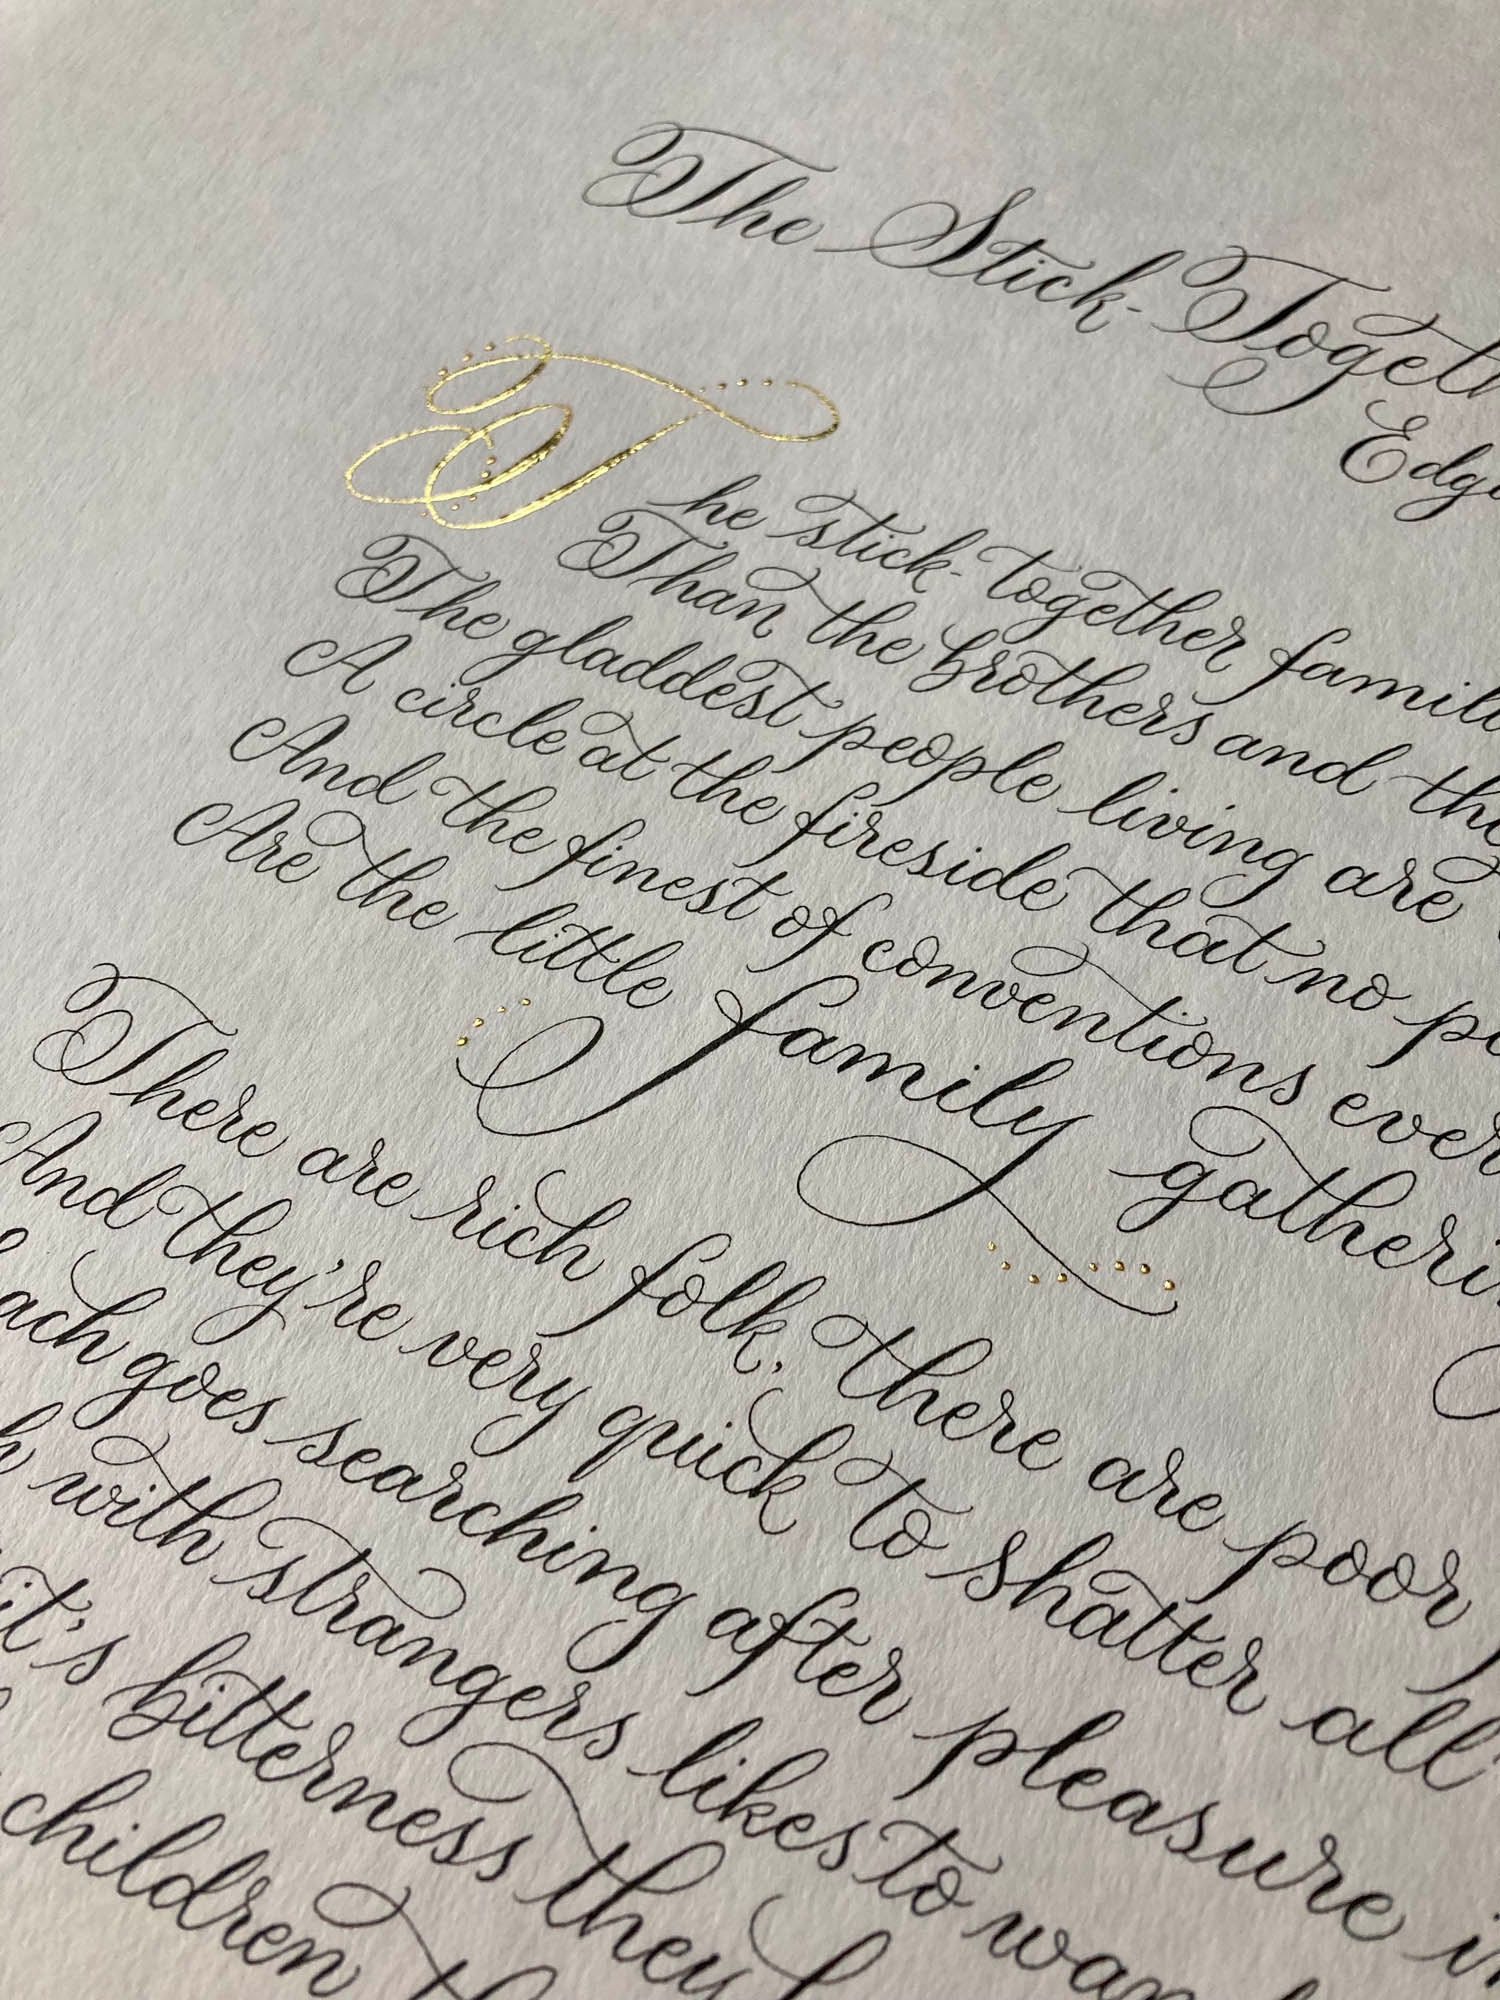 The Stick-Togeth
Edg
The stick-together famili
Than the brothers and the
The gladdest people living are
A circle at the fireside that no po
And the finest of conventions ever
Are the little family gatheri
There are rich folk, there are poor
And they're very quick to shatter all
each goes searching after pleasure i
with strangers likes to wan
it's bitterness they
children